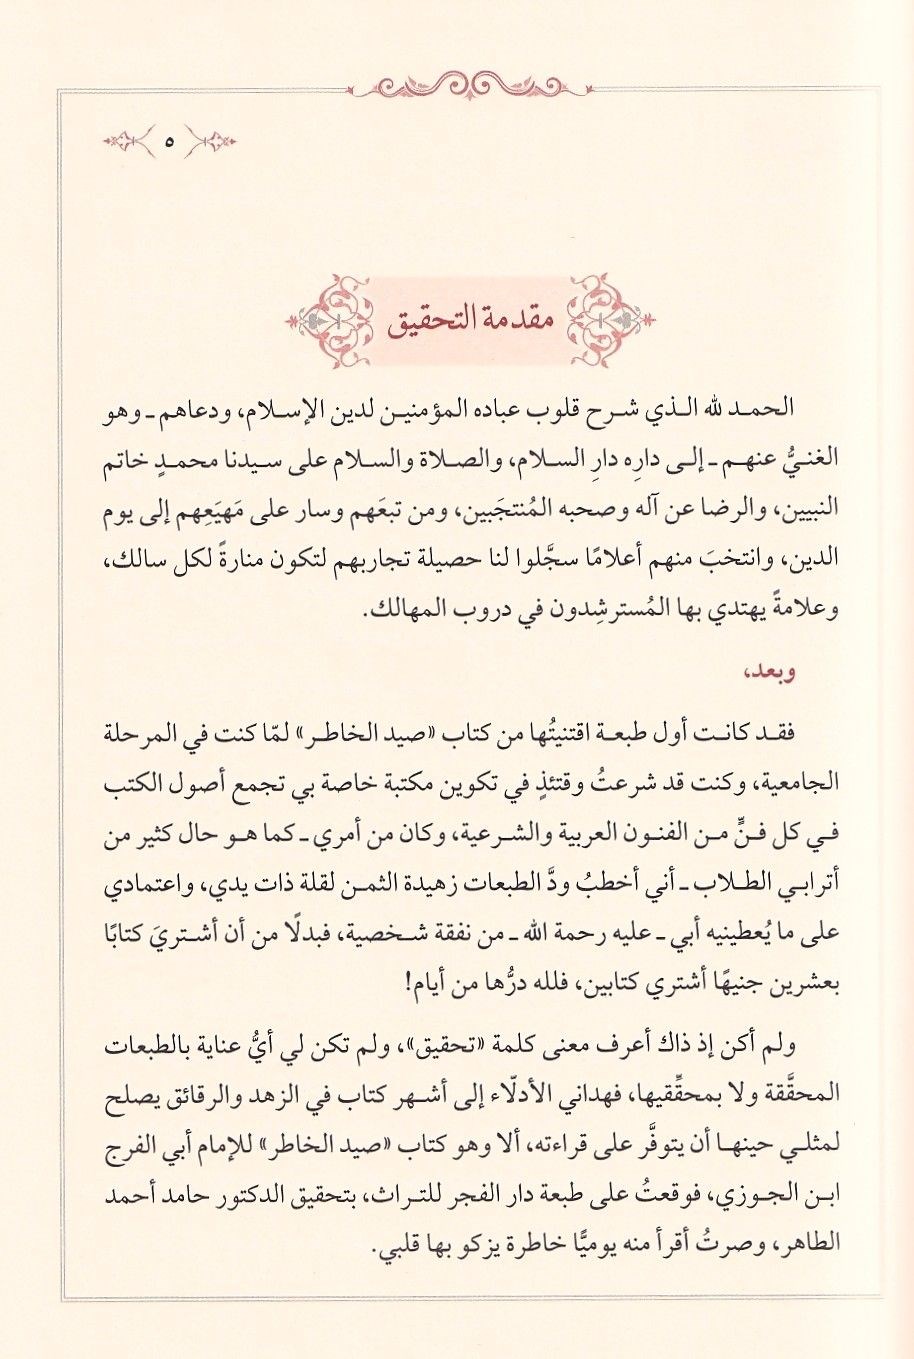 ٥
مقدمة التحقيق
الحمد لله الذي شرح قلوب عباده المؤمنين لدين الإسلام، ودعاهم ـ وهو
الغنيُّ عنهم ـ إلى دارِه دارِ السلام، والصلاة والسلام على سيدنا محمدٍ خاتم
النبيين، والرضا عن آله وصحبه المُنتجَبين، ومن تبعَهم وسار على مَهيَعِهم إلى يوم
الدين، وانتخبَ منهم أعلامًا سجَّلوا لنا حصيلة تجاربهم لتكون منارةً لكل سالك،
وعلامةً يهتدي بها المُسترشِدون في دروب المهالك.
وبعد،
فقد كانت أول طبعة اقتنيتُها من كتاب «صيد الخاطر» لمّا كنت في المرحلة
الجامعية، وكنت قد شرعتُ وقتئذٍ في تكوين مكتبة خاصة بي تجمع أصول الكتب
في كل فنٍّ من الفنون العربية والشرعية، وكان من أمري ـ كما هو حال كثير من
أترابي الطلاب ـ أني أخطبُ ودَّ الطبعات زهيدة الثمن لقلة ذات يدي، واعتمادي
على ما يُعطينيه أبي ـ عليه رحمة الله ـ من نفقة شخصية، فبدلًا من أن أشتريَ كتابًا
بعشرين جنيهًا أشتري كتابين، فلله درُّها من أيام!
ولم أكن إذ ذاك أعرف معنى كلمة «تحقيق»، ولم تكن لي أيُّ عناية بالطبعات
المحقَّقة ولا بمحقِّقيها، فهداني الأدلّاء إلى أشهر كتاب في الزهد والرقائق يصلح
لمثلي حينها أن يتوفَّر على قراءته، ألا وهو كتاب «صيد الخاطر» للإمام أبي الفرج
ابن الجوزي، فوقعتُ على طبعة دار الفجر للتراث، بتحقيق الدكتور حامد أحمد
الطاهر، وصرتُ أقرأ منه يوميًّا خاطرة يزكو بها قلبي.